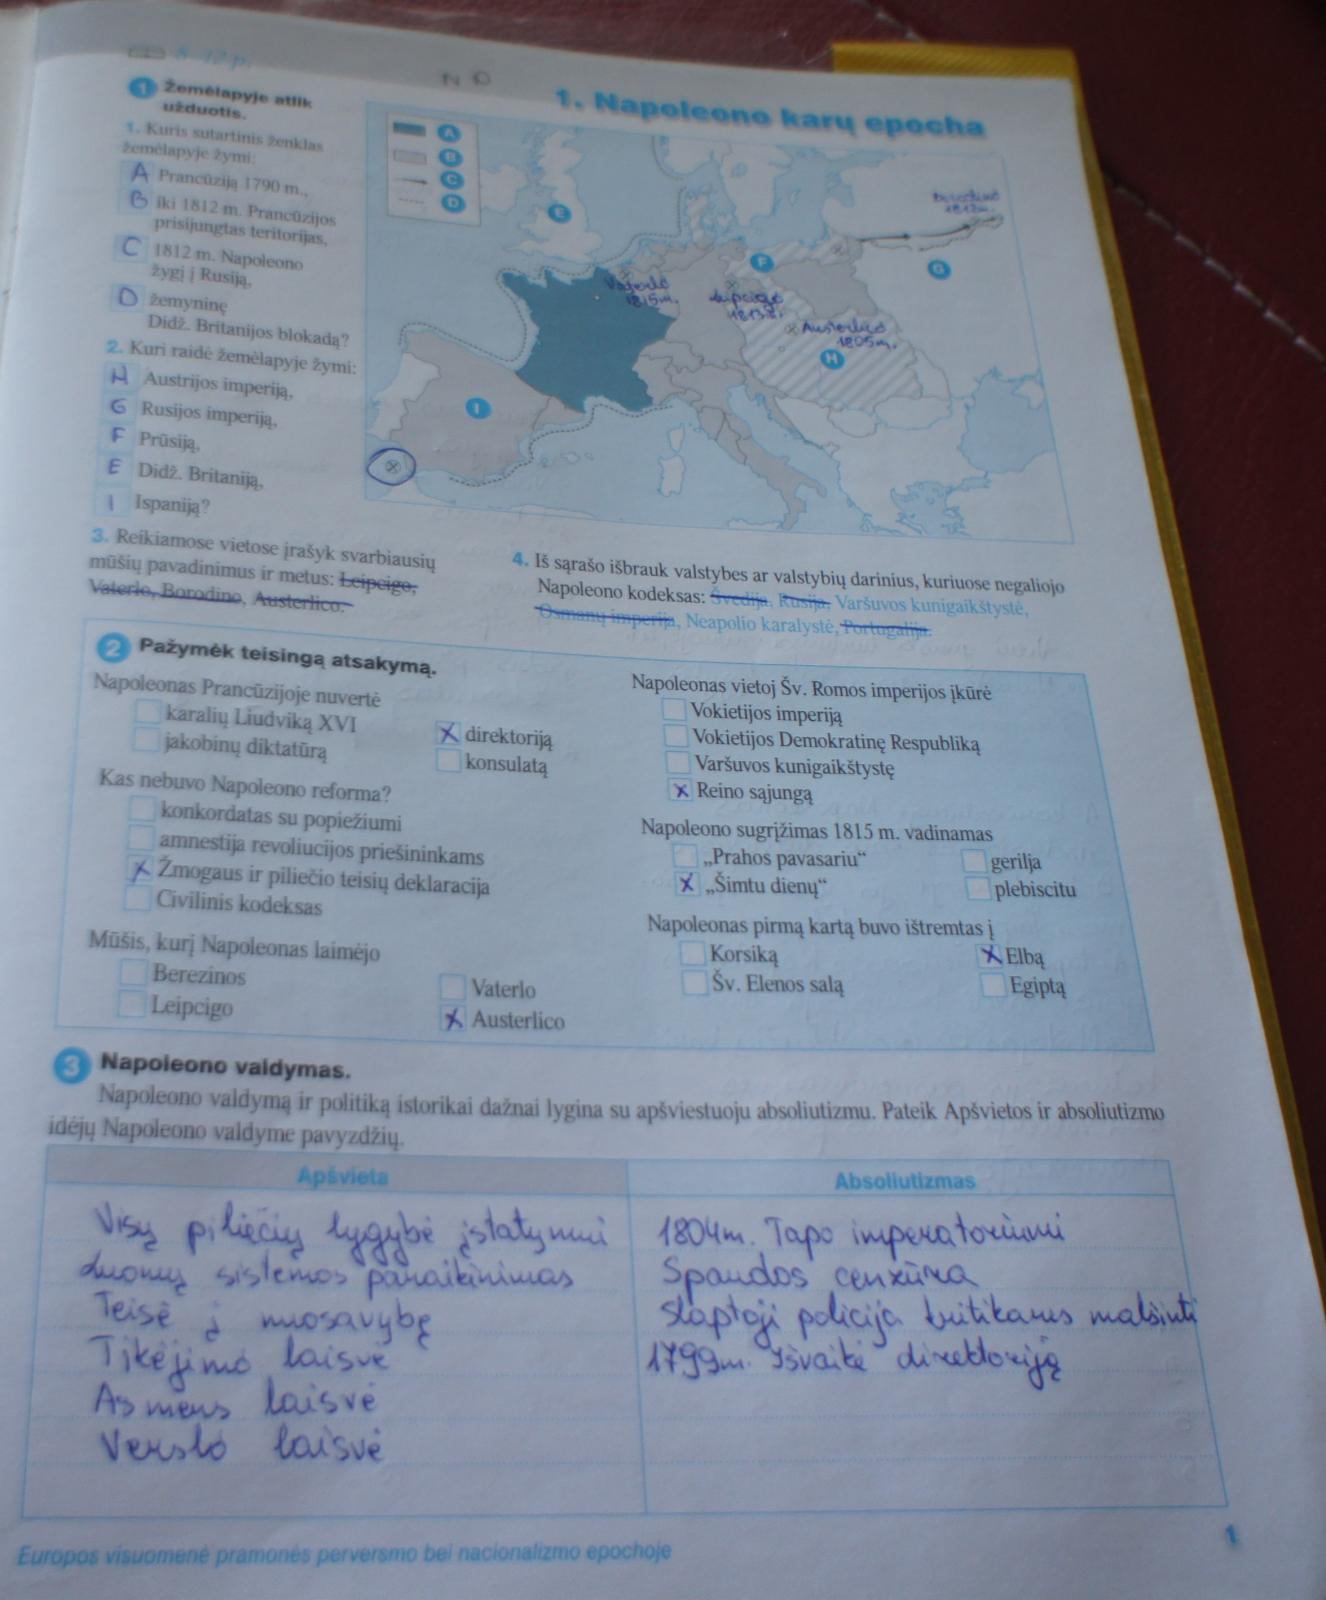 8-12 p.
N D
1. Napoleono karų epocha
1 Žemėlapyje atlik
užduotis.
1. Kuris sutartinis ženklas
žemėlapyje žymi:
A Prancūziją 1790 m.,
B iki 1812 m. Prancūzijos
prisijungtas teritorijas,
C 1812 m. Napoleono
žygį į Rusiją,
D žemyninę
Didž. Britanijos blokadą?
2. Kuri raidė žemėlapyje žymi:
H Austrijos imperiją,
G Rusijos imperiją,
F Prūsiją,
E Didž. Britaniją,
I Ispaniją?
A
B
C
D
E
F
G
H
I
Borodino
1812m.
Vaterlo
1815m.
Leipcigo
1813m.
Austerlico
1805m.
3. Reikiamose vietose įrašyk svarbiausių
mūšių pavadinimus ir metus: Leipcigo,
Vaterlo, Borodino, Austerlico.
4. Iš sąrašo išbrauk valstybes ar valstybių darinius, kuriuose negaliojo
Napoleono kodeksas: Švedija, Rusija, Varšuvos kunigaikštystė,
Osmanų imperija, Neapolio karalystė, Portugalija.
2 Pažymėk teisingą atsakymą.
Napoleonas Prancūzijoje nuvertė
karalių Liudviką XVI
jakobinų diktatūrą
X direktoriją
konsulatą
Kas nebuvo Napoleono reforma?
konkordatas su popiežiumi
amnestija revoliucijos priešininkams
X Žmogaus ir piliečio teisių deklaracija
Civilinis kodeksas
Mūšis, kurį Napoleonas laimėjo
Berezinos
Leipcigo
Vaterlo
X Austerlico
Napoleonas vietoj Šv. Romos imperijos įkūrė
Vokietijos imperiją
Vokietijos Demokratinę Respubliką
Varšuvos kunigaikštystę
X Reino sąjungą
Napoleono sugrįžimas 1815 m. vadinamas
„Prahos pavasariu“
X „Šimtu dienų“
gerilja
plebiscitu
Napoleonas pirmą kartą buvo ištremtas į
Korsiką
Šv. Elenos salą
X Elbą
Egiptą
3 Napoleono valdymas.
Napoleono valdymą ir politiką istorikai dažnai lygina su apšviestuoju absoliutizmu. Pateik Apšvietos ir absoliutizmo
idėjų Napoleono valdyme pavyzdžių.
Apšvieta
Visų piliečių lygybė įstatymui
Luomų sistemos panaikinimas
Teisė į nuosavybę
Tikėjimo laisvė
Asmens laisvė
Verslo laisvė
Absoliutizmas
1804m. Tapo imperatoriumi
Spaudos cenzūra
Slaptoji policija kritikams malšinti
1799m. Išvaikė direktoriją
Europos visuomenė pramonės perversmo bei nacionalizmo epochoje
1